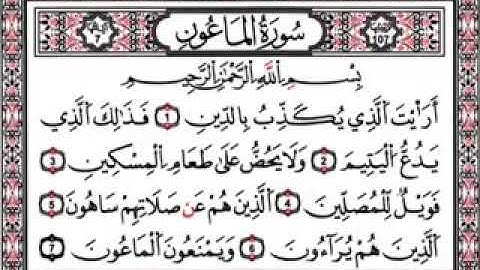 سُورَةُ الْمَاعُونِ 107
بِسْمِ اللَّهِ الرَّحْمَٰنِ الرَّحِيمِ
أَرَأَيْتَ الَّذِي يُكَذِّبُ بِالدِّينِ 1 فَذَٰلِكَ الَّذِي
يَدُعُّ الْيَتِيمَ 2 وَلَا يَحُضُّ عَلَىٰ طَعَامِ الْمِسْكِينِ 3
فَوَيْلٌ لِلْمُصَلِّينَ 4 الَّذِينَ هُمْ عَنْ صَلَاتِهِمْ سَاهُونَ 5
الَّذِينَ هُمْ يُرَاءُونَ 6 وَيَمْنَعُونَ الْمَاعُونَ 7